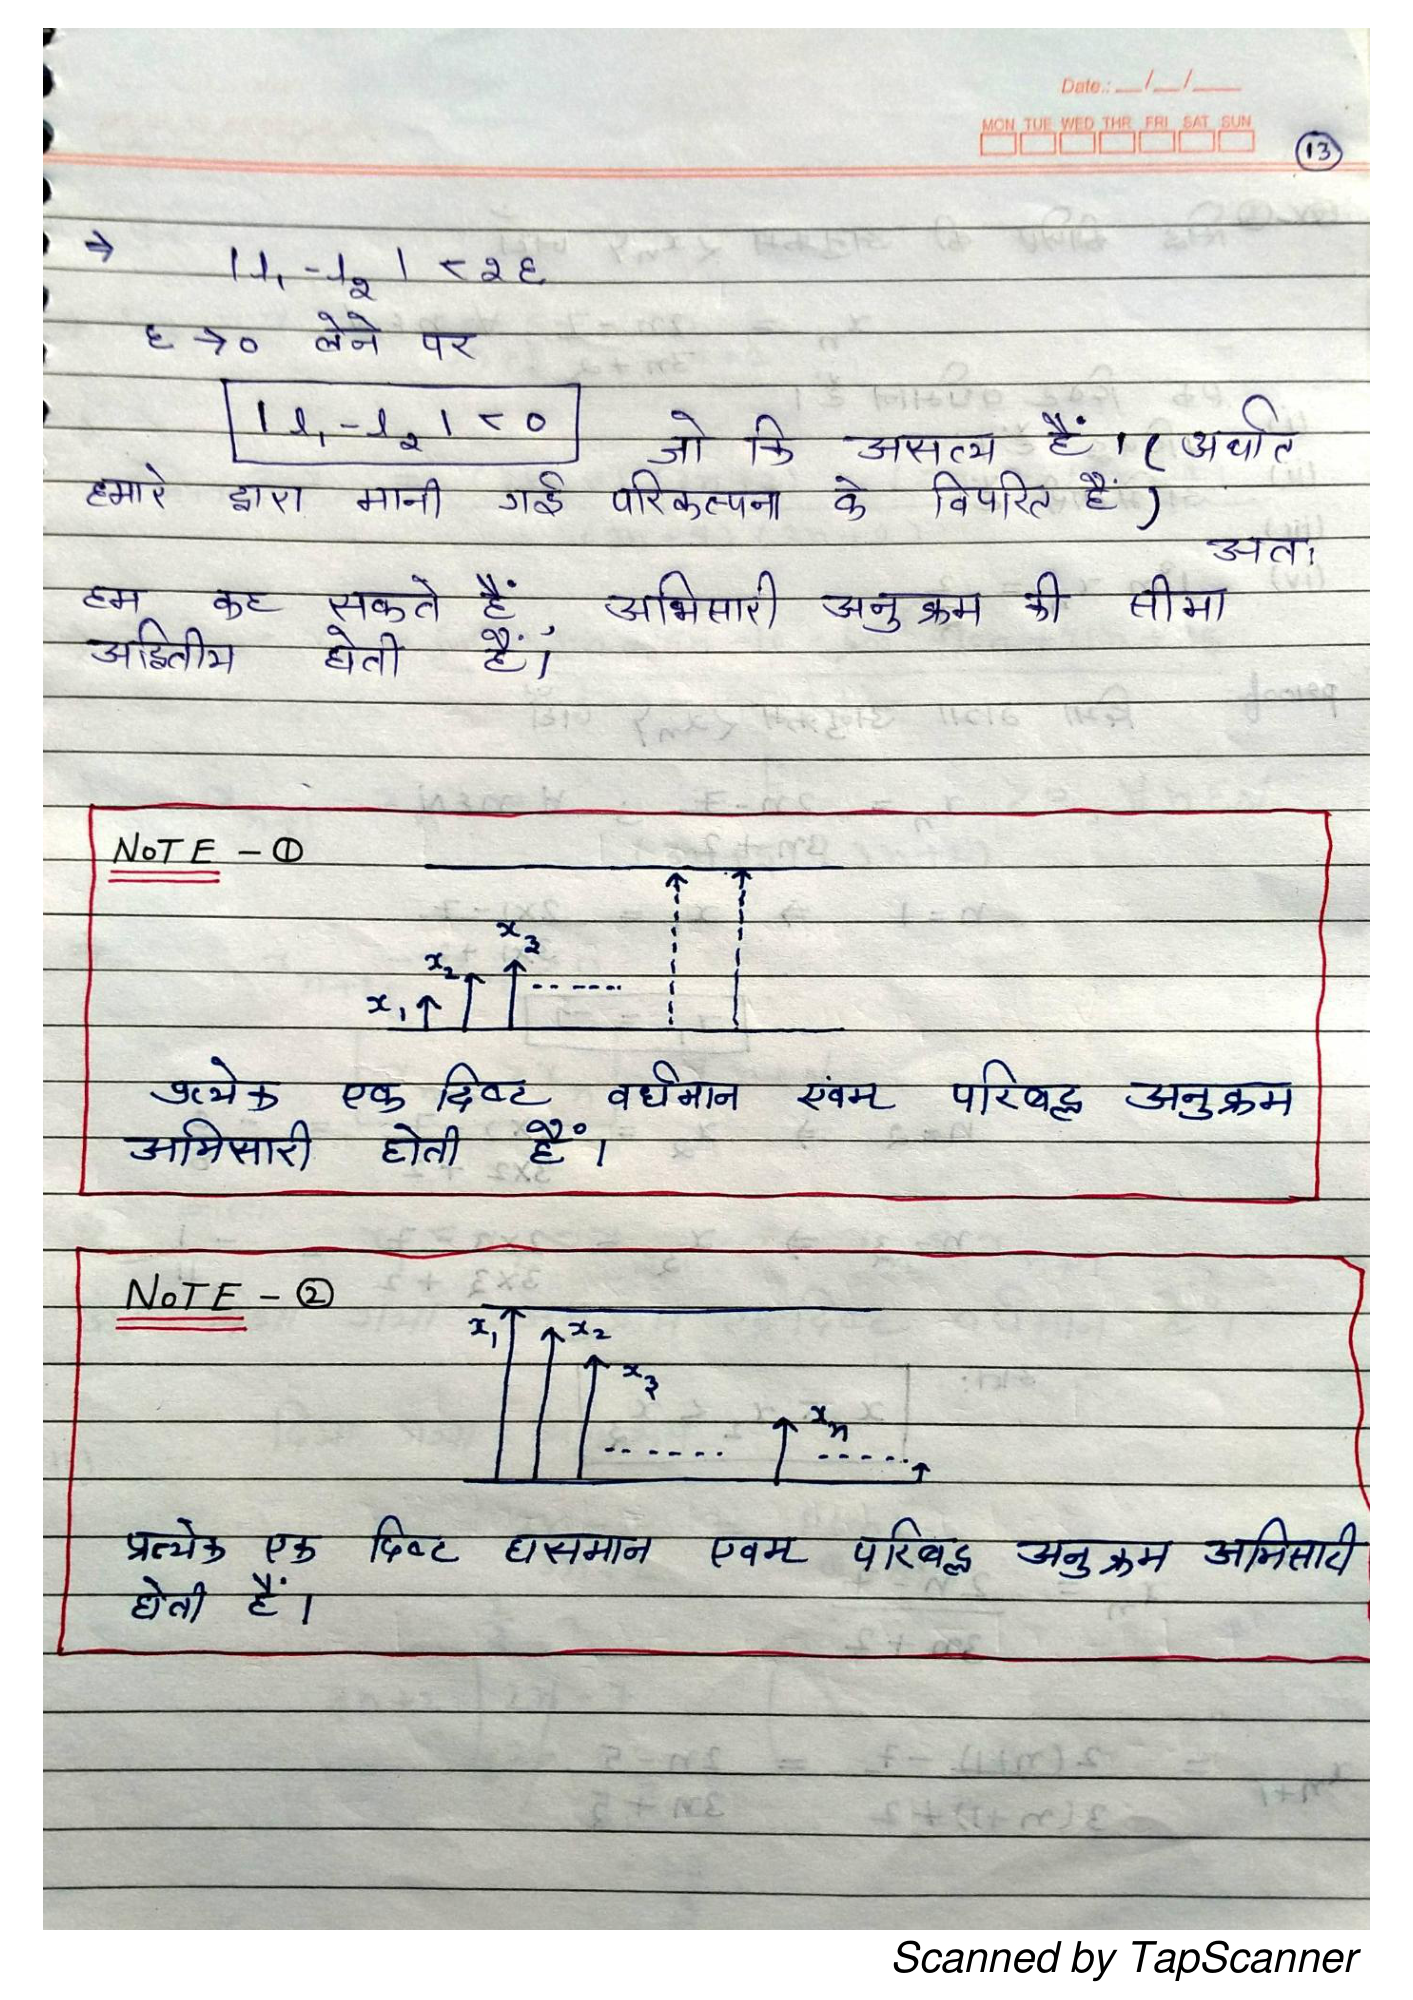 Date.: __/__/____
MON TUE WED THR FRI SAT SUN
13
⇒ |l₁ - l₂| < 2ε
ε → 0 लेने पर
|l₁ - l₂| < 0 जो कि असत्य हैं। (अर्थात
हमारे द्वारा मानी गई परिकल्पना के विपरित हैं)
अतः
हम कह सकते हैं, अभिसारी अनुक्रम की सीमा
अद्वितीय होती हैं।
NOTE - ①
x₃
x₂
x₁
प्रत्येक एक दिष्ट वर्धमान एंवम परिबद्ध अनुक्रम
अभिसारी होती हैं।
NOTE - ②
x₁ x₂
x₃
xₙ
प्रत्येक एक दिष्ट हासमान एवम परिबद्ध अनुक्रम अभिसारी
होती हैं।
Scanned by TapScanner